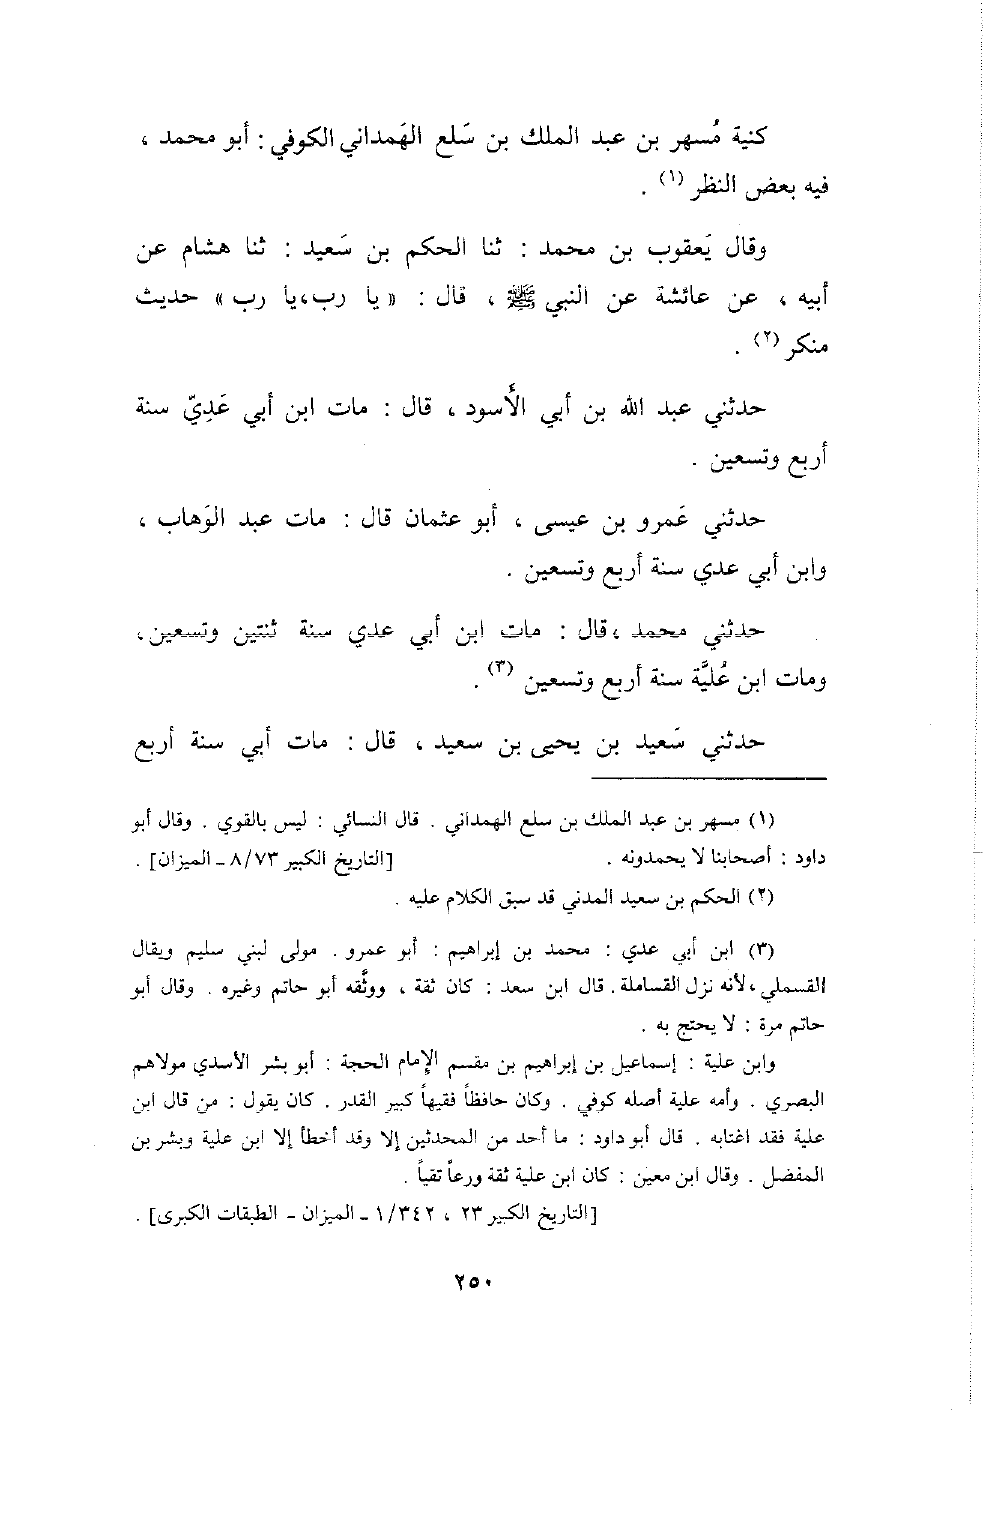 كنية مُسهر بن عبد الملك بن سَلع الهَمداني الكوفي : أبو محمد ،
فيه بعض النظر (١) .
وقال يَعقوب بن محمد : ثنا الحكم بن سَعيد : ثنا هشام عن
أبيه ، عن عائشة عن النبي ﷺ ، قال : « يا رب،يا رب » حديث
منكر (٢) .
حدثني عبد الله بن أبي الأَسود ، قال : مات ابن أبي عَدِيّ سنة
أربع وتسعين .
حدثني عَمرو بن عيسى ، أبو عثمان قال : مات عبد الوَهاب ،
وابن أبي عدي سنة أربع وتسعين .
حدثني محمد ،قال : مات ابن أبي عدي سنة ثنتين وتسعين،
ومات ابن عُليَّة سنة أربع وتسعين (٣) .
حدثني سَعيد بن يحيى بن سعيد ، قال : مات أبي سنة أربع
(١) مسهر بن عبد الملك بن سلع الهمداني . قال النسائي : ليس بالقوي . وقال أبو
داود : أصحابنا لا يحمدونه . [التاريخ الكبير ٨/٧٣ ـ الميزان] .
(٢) الحكم بن سعيد المدني قد سبق الكلام عليه .
(٣) ابن أبي عدي : محمد بن إبراهيم : أبو عمرو . مولى لبني سليم ويقال
القسملي ،لأنه نزل القساملة . قال ابن سعد : كان ثقة ، ووثَّقه أبو حاتم وغيره . وقال أبو
حاتم مرة : لا يحتج به .
وابن علية : إسماعيل بن إبراهيم بن مقسم الإمام الحجة : أبو بشر الأسدي مولاهم
البصري . وأمه علية أصله كوفي . وكان حافظاً فقيهاً كبير القدر . كان يقول : من قال ابن
علية فقد اغتابه . قال أبو داود : ما أحد من المحدثين إلا وقد أخطأ إلا ابن علية وبشر بن
المفضل . وقال ابن معين : كان ابن علية ثقة ورعاً تقياً .
[التاريخ الكبير ٢٣ ، ١/٣٤٢ ـ الميزان - الطبقات الكبرى] .
٢٥٠